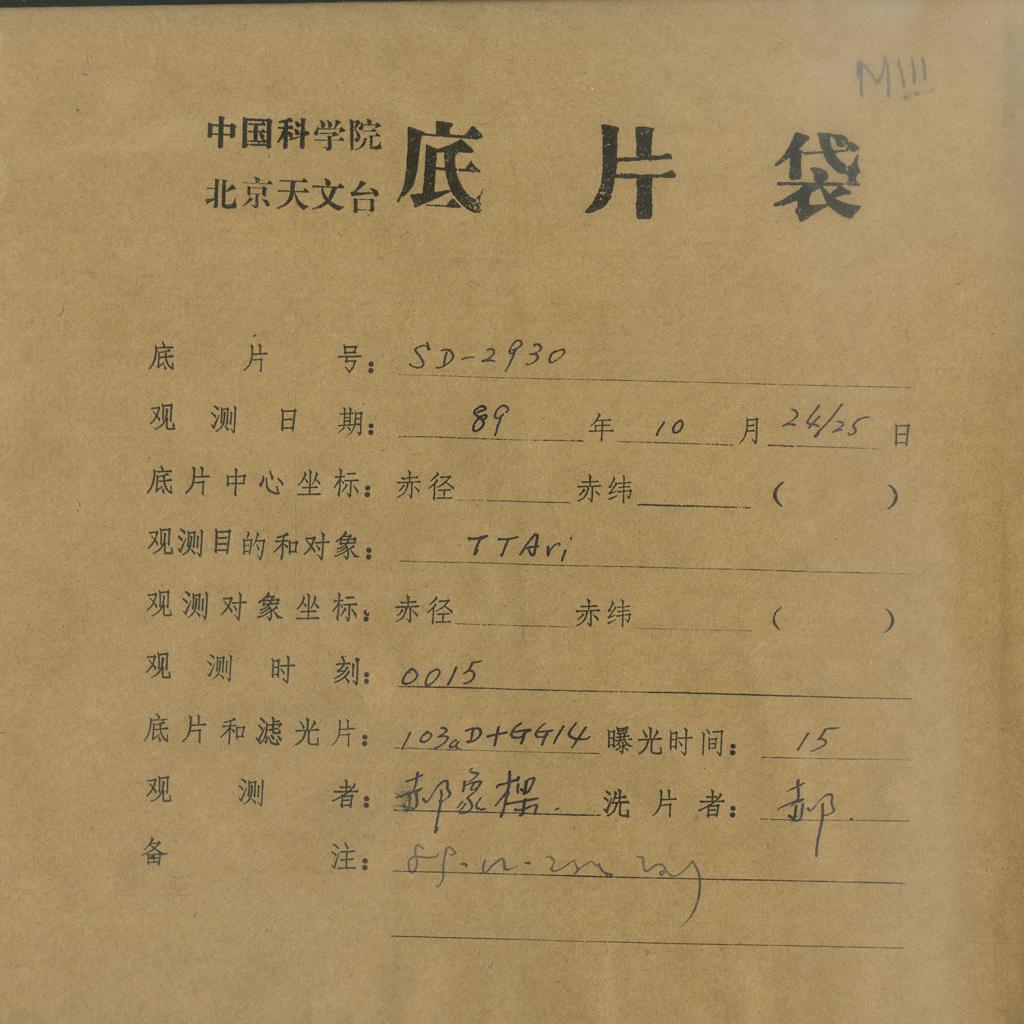 M111
中国科学院
北京天文台
底片袋
底片号：SD-2930
观测日期：89年10月24/25日
底片中心坐标：赤径 赤纬 （ ）
观测目的和对象：TTAri
观测对象坐标：赤径 赤纬 （ ）
观测时刻：0015
底片和滤光片：103aD+GG14 曝光时间：15
观测者：郝象樑. 洗片者：郝.
备注：